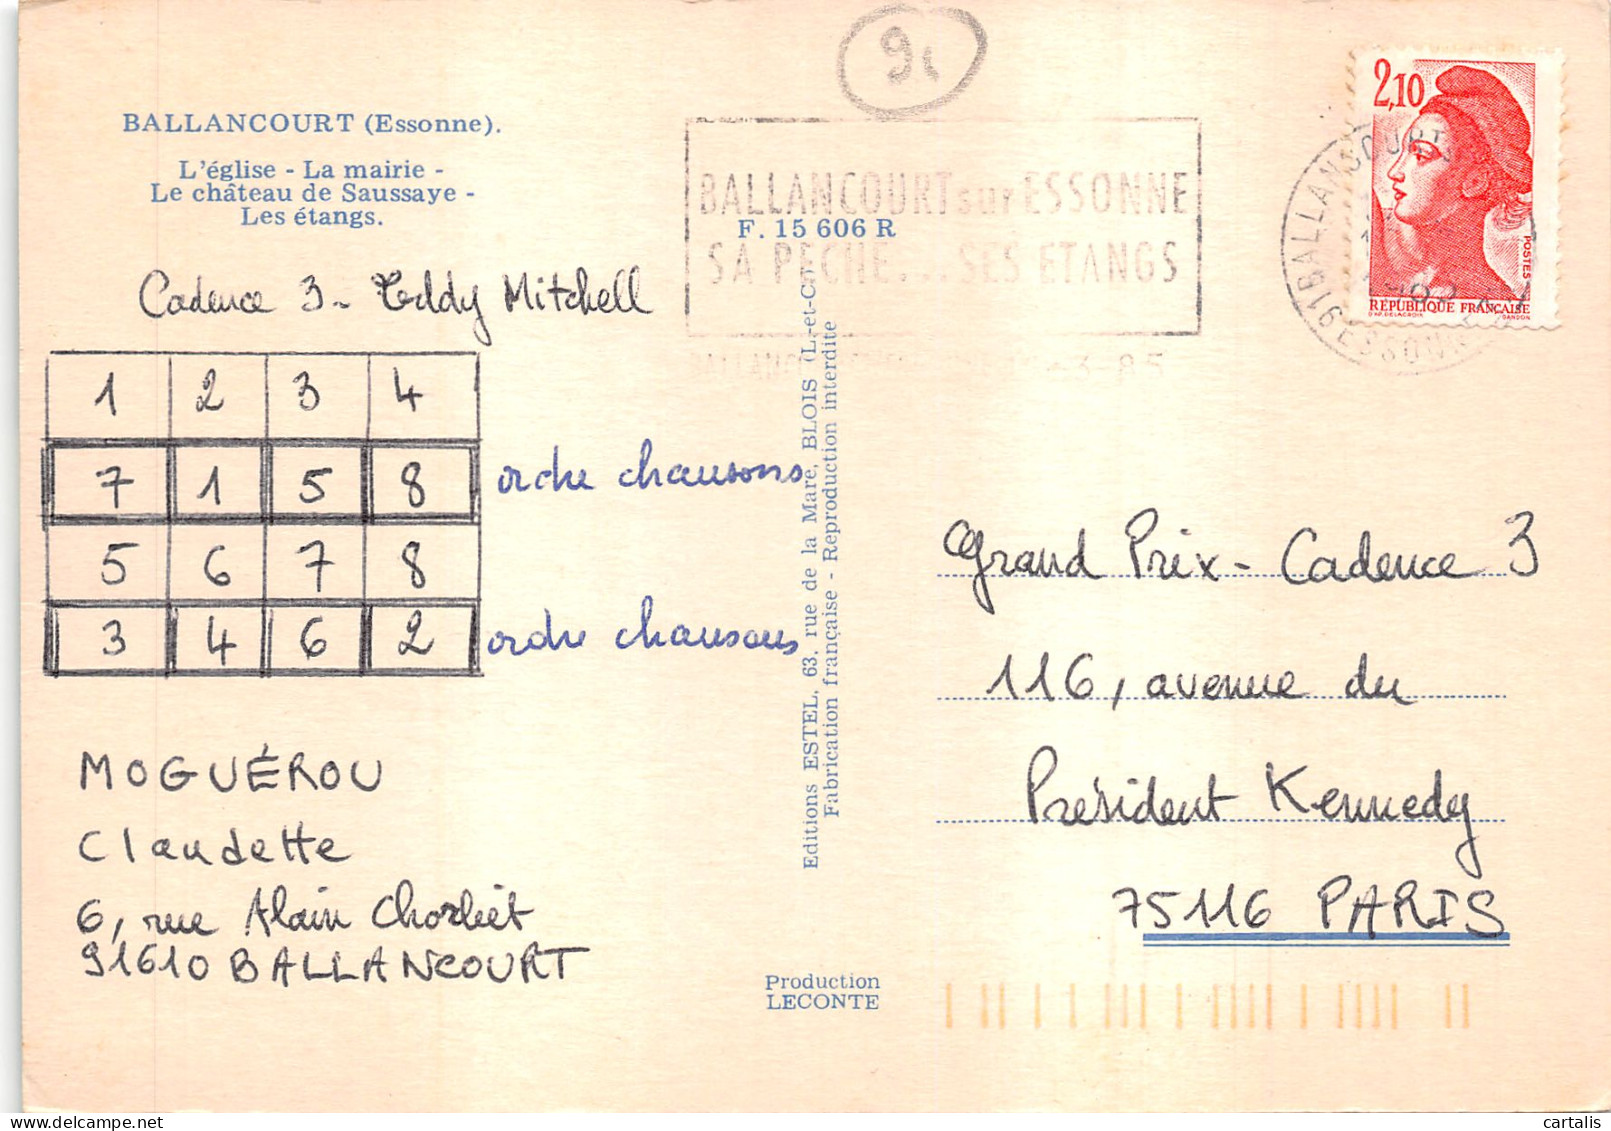 91
BALLANCOURT (Essonne).
L'église - La mairie -
Le château de Saussaye -
Les étangs.
F. 15 606 R
BALLANCOURT sur ESSONNE
SA PECHE... SES ETANGS
-3-85
2,10
POSTES
RÉPUBLIQUE FRANÇAISE
D'AP. DELACROIX GANDON
91 BALLANCOURT
ESSONNE
Cadence 3 - Eddy Mitchell
1 2 3 4
7 1 5 8 ordre chansons
5 6 7 8
3 4 6 2 ordre chansons
MOGUÉROU
Claudette
6, rue Alain
91610 BALLANCOURT
Editions ESTEL, 63, rue de la Mare, BLOIS (L.-et-C.)
Fabrication française - Reproduction interdite
Production
LECONTE
Grand Prix - Cadence 3
116, avenue du
Président Kennedy
75116 PARIS
cartalis